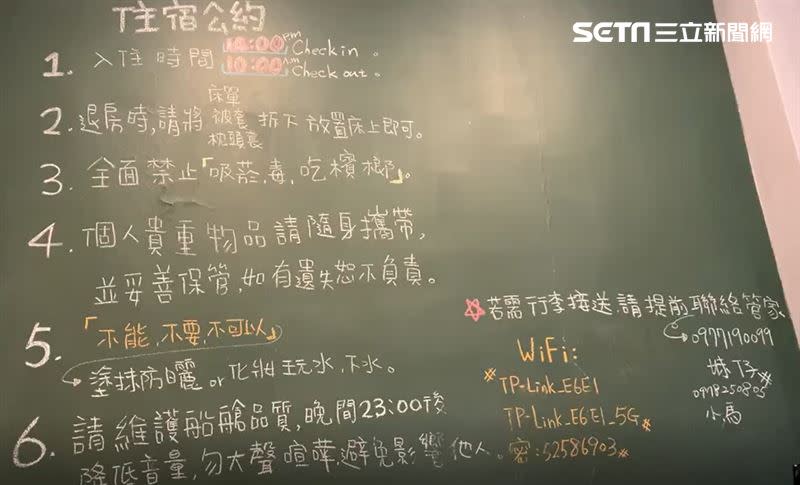 SETN三立新聞網
住宿公約
1. 入住時間 10:00 pm Check in。
10:00 Am Check out。
2. 退房時,請將 床單 被套 枕頭套 拆下放置床上即可。
3. 全面禁止「吸菸,毒,吃檳榔」。
4. 個人貴重物品請隨身攜帶,
並妥善保管,如有遺失恕不負責。
5. 「不能,不要,不可以」
塗抹防曬 or 化妝玩水,下水。
6. 請維護船艙品質,晚間23:00後
降低音量,勿大聲喧嘩,避免影響他人。
☆若需行李接送,請提前聯絡管家
0977190099
妹仔
0978250805
小馬
WiFi:
*TP-Link_E6E1
TP-Link_E6E1_5G*
密:52586903*